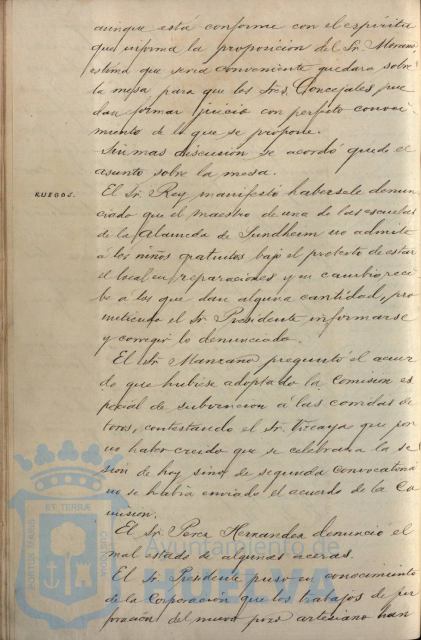 aunque está conforme con el espíritu
que informa la proposición del Sr. Moreno,
estima que seria conveniente quedara sobre
la mesa para que los Sres. Concejales pue
dan formar juicio con perfecto conoci-
miento de lo que se propone.
Sin mas discusión se acordó quede el
asunto sobre la mesa.
RUEGOS.
El Sr. Rey manifestó habersele denun
ciado que el maestro de una de las escuelas
de la Alameda de Sundheim no admite
á los niños gratuitos bajo el pretexto de estar
el local en reparaciones y en cambio reci
be á los que dan alguna cantidad, pro
metiendo el Sr. Presidente informarse
y corregir lo denunciado.
El Sr. Manzano preguntó el acuer
do que hubiese adoptado la Comision es
pecial de subvencion á las corridas de
toros, contestando el Sr. Vizcaya que por
no haber creido que se celebrara la se
sión de hoy sino de segunda convocatoria
no se habia enviado el acuerdo de la Co
mision.
El Sr. Perez Hernandez denunció el
mal estado de algunas aceras.
El Sr. Presidente puso en conocimiento
de la Corporación que los trabajos de per
foración del nuevo pozo artesiano han
PORTUS MARIS
ET TERRÆ
CUSTODIA
Ayuntamiento de
HUELVA